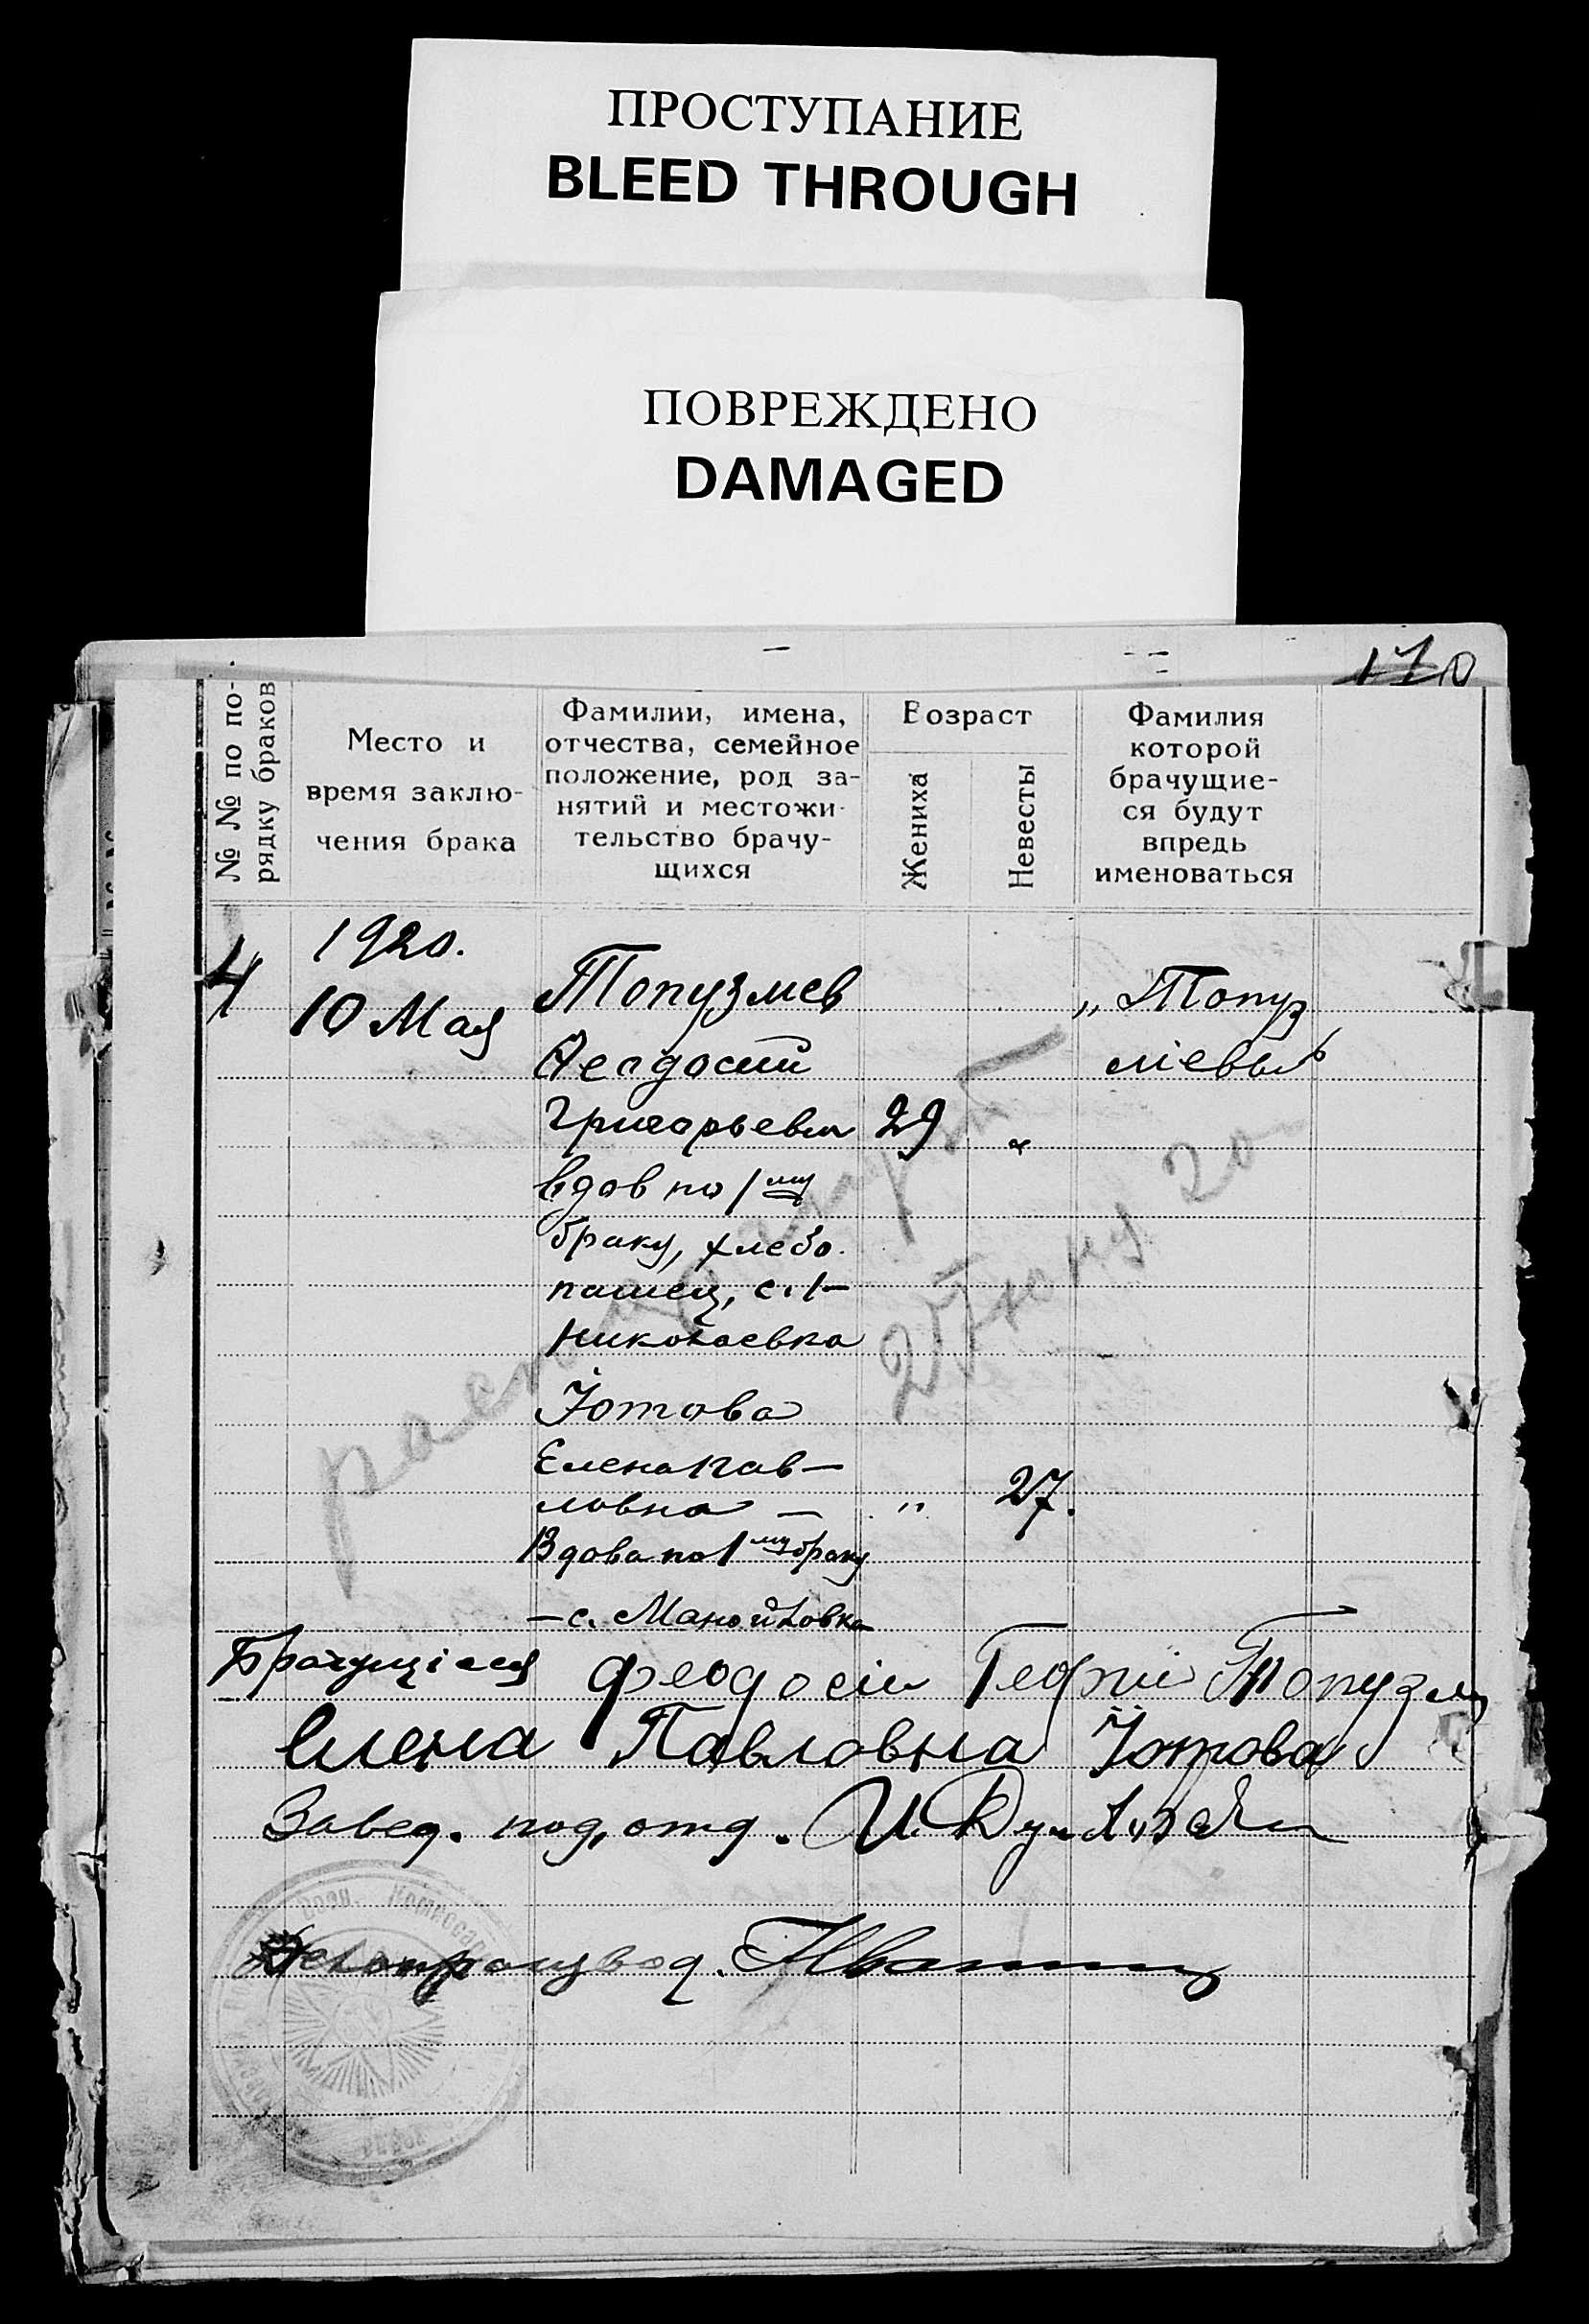 ПРОСТУПАНИЕ
BLEED THROUGH
ПОВРЕЖДЕНО
DAMAGED
170
№ № по по-
рядку браков
Место и
время заклю-
чения брака
Фамилии, имена,
отчества, семейное
положение, род за-
нятий и местожи-
тельство брачу-
щихся
Возраст
Жениха
Невесты
Фамилия
которой
брачущие-
ся будут
впредь
именоваться
4
1920.
10 Мая
Топузлиев
Феодосий
Григорьевич
вдов по 1му
браку, хлебо.
пашец, с. 1-
Николаевка
29 "
„Топуз
ліевы"
Йотова
Елена Пав-
ловна —
" 27.
Вдова по 1му браку
— с. Манойловка
20
Брачущіеся Феодосій Георгий Топузли
Елена Павловна Йотова
Завед. под, отд. И.
Делопроизвод.